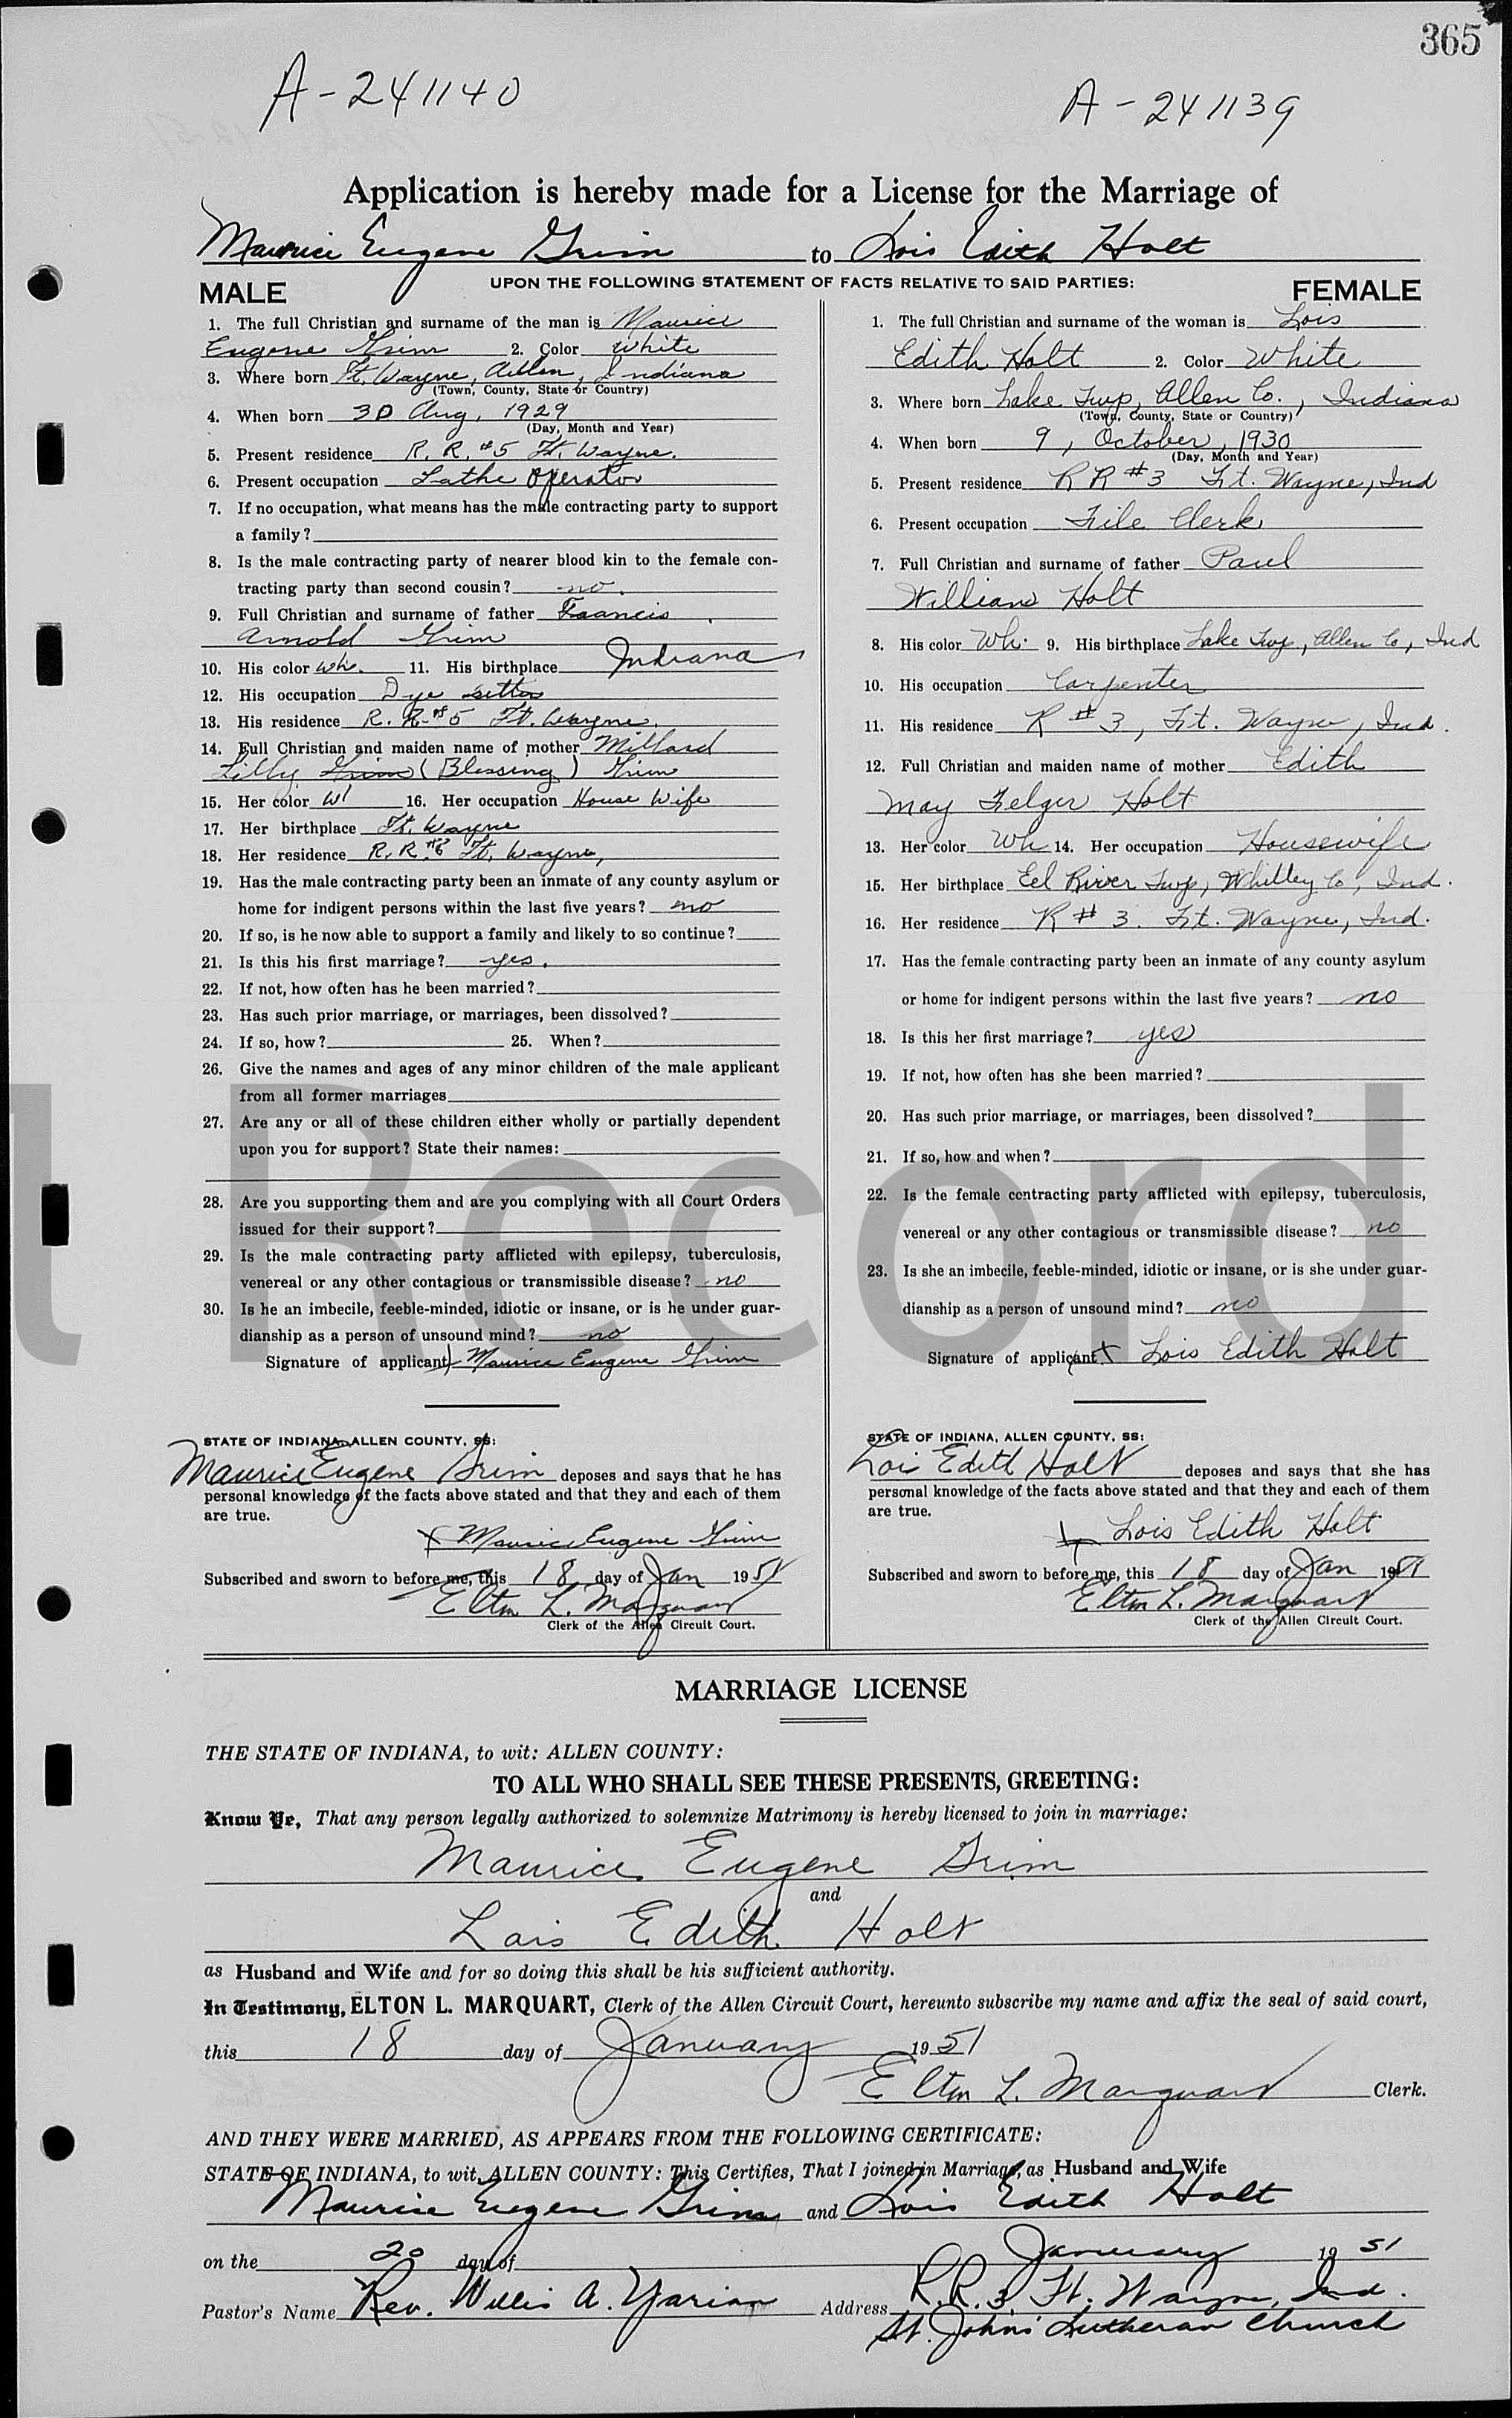 365
A-241140 A-241139
Application is hereby made for a License for the Marriage of
Maurice Eugene Grim to Lois Edith Holt
UPON THE FOLLOWING STATEMENT OF FACTS RELATIVE TO SAID PARTIES:
MALE
1. The full Christian and surname of the man is Maurice
Eugene Grim 2. Color White
3. Where born Ft. Wayne, Allen, Indiana
(Town, County, State or Country)
4. When born 30 Aug, 1929
(Day, Month and Year)
5. Present residence R. R. #5 Ft. Wayne.
6. Present occupation Lathe Operator
7. If no occupation, what means has the male contracting party to support
a family?
8. Is the male contracting party of nearer blood kin to the female con-
tracting party than second cousin? no.
9. Full Christian and surname of father Francis
Arnold Grim
10. His color Wh. 11. His birthplace Indiana
12. His occupation Dye setter
13. His residence R. R. #5 Ft. Wayne.
14. Full Christian and maiden name of mother Millard
Lilly Grim (Blessing) Grim
15. Her color W 16. Her occupation House Wife
17. Her birthplace Ft. Wayne
18. Her residence R. R. #5 Ft. Wayne,
19. Has the male contracting party been an inmate of any county asylum or
home for indigent persons within the last five years? no
20. If so, is he now able to support a family and likely to so continue?
21. Is this his first marriage? yes.
22. If not, how often has he been married?
23. Has such prior marriage, or marriages, been dissolved?
24. If so, how? 25. When?
26. Give the names and ages of any minor children of the male applicant
from all former marriages
27. Are any or all of these children either wholly or partially dependent
upon you for support? State their names:
28. Are you supporting them and are you complying with all Court Orders
issued for their support?
29. Is the male contracting party afflicted with epilepsy, tuberculosis,
venereal or any other contagious or transmissible disease? no
30. Is he an imbecile, feeble-minded, idiotic or insane, or is he under guar-
dianship as a person of unsound mind? no
Signature of applicant Maurice Eugene Grim
STATE OF INDIANA, ALLEN COUNTY, SS:
Maurice Eugene Grim deposes and says that he has
personal knowledge of the facts above stated and that they and each of them
are true.
x Maurice Eugene Grim
Subscribed and sworn to before me, this 18 day of Jan 1951
Elton L. Marquart
Clerk of the Allen Circuit Court.
FEMALE
1. The full Christian and surname of the woman is Lois
Edith Holt 2. Color White
3. Where born Lake Twp, Allen Co., Indiana
(Town, County, State or Country)
4. When born 9, October, 1930
(Day, Month and Year)
5. Present residence R R #3 Ft. Wayne, Ind
6. Present occupation File Clerk
7. Full Christian and surname of father Paul
William Holt
8. His color Wh. 9. His birthplace Lake Twp, Allen Co, Ind
10. His occupation Carpenter
11. His residence R #3, Ft. Wayne, Ind.
12. Full Christian and maiden name of mother Edith
May Felger Holt
13. Her color Wh 14. Her occupation Housewife
15. Her birthplace Eel River Twp, Whitley Co, Ind.
16. Her residence R #3. Ft. Wayne, Ind.
17. Has the female contracting party been an inmate of any county asylum
or home for indigent persons within the last five years? no
18. Is this her first marriage? yes
19. If not, how often has she been married?
20. Has such prior marriage, or marriages, been dissolved?
21. If so, how and when?
22. Is the female contracting party afflicted with epilepsy, tuberculosis,
venereal or any other contagious or transmissible disease? no
23. Is she an imbecile, feeble-minded, idiotic or insane, or is she under guar-
dianship as a person of unsound mind? no
Signature of applicant x Lois Edith Holt
STATE OF INDIANA, ALLEN COUNTY, SS:
Lois Edith Holt deposes and says that she has
personal knowledge of the facts above stated and that they and each of them
are true.
x Lois Edith Holt
Subscribed and sworn to before me, this 18 day of Jan 1951
Elton L. Marquart
Clerk of the Allen Circuit Court.
MARRIAGE LICENSE
THE STATE OF INDIANA, to wit: ALLEN COUNTY:
TO ALL WHO SHALL SEE THESE PRESENTS, GREETING:
Know Ye, That any person legally authorized to solemnize Matrimony is hereby licensed to join in marriage:
Maurice Eugene Grim
and
Lois Edith Holt
as Husband and Wife and for so doing this shall be his sufficient authority.
In Testimony, ELTON L. MARQUART, Clerk of the Allen Circuit Court, hereunto subscribe my name and affix the seal of said court,
this 18 day of January 1951
Elton L. Marquart Clerk.
AND THEY WERE MARRIED, AS APPEARS FROM THE FOLLOWING CERTIFICATE:
STATE OF INDIANA, to wit, ALLEN COUNTY: This Certifies, That I joined in Marriage, as Husband and Wife
Maurice Eugene Grim and Lois Edith Holt
on the 20 day of January 1951
Pastor's Name Rev. Willis A. Yarian Address R.R. 3, Ft. Wayne, Ind.
St. Johns Lutheran Church
t Record